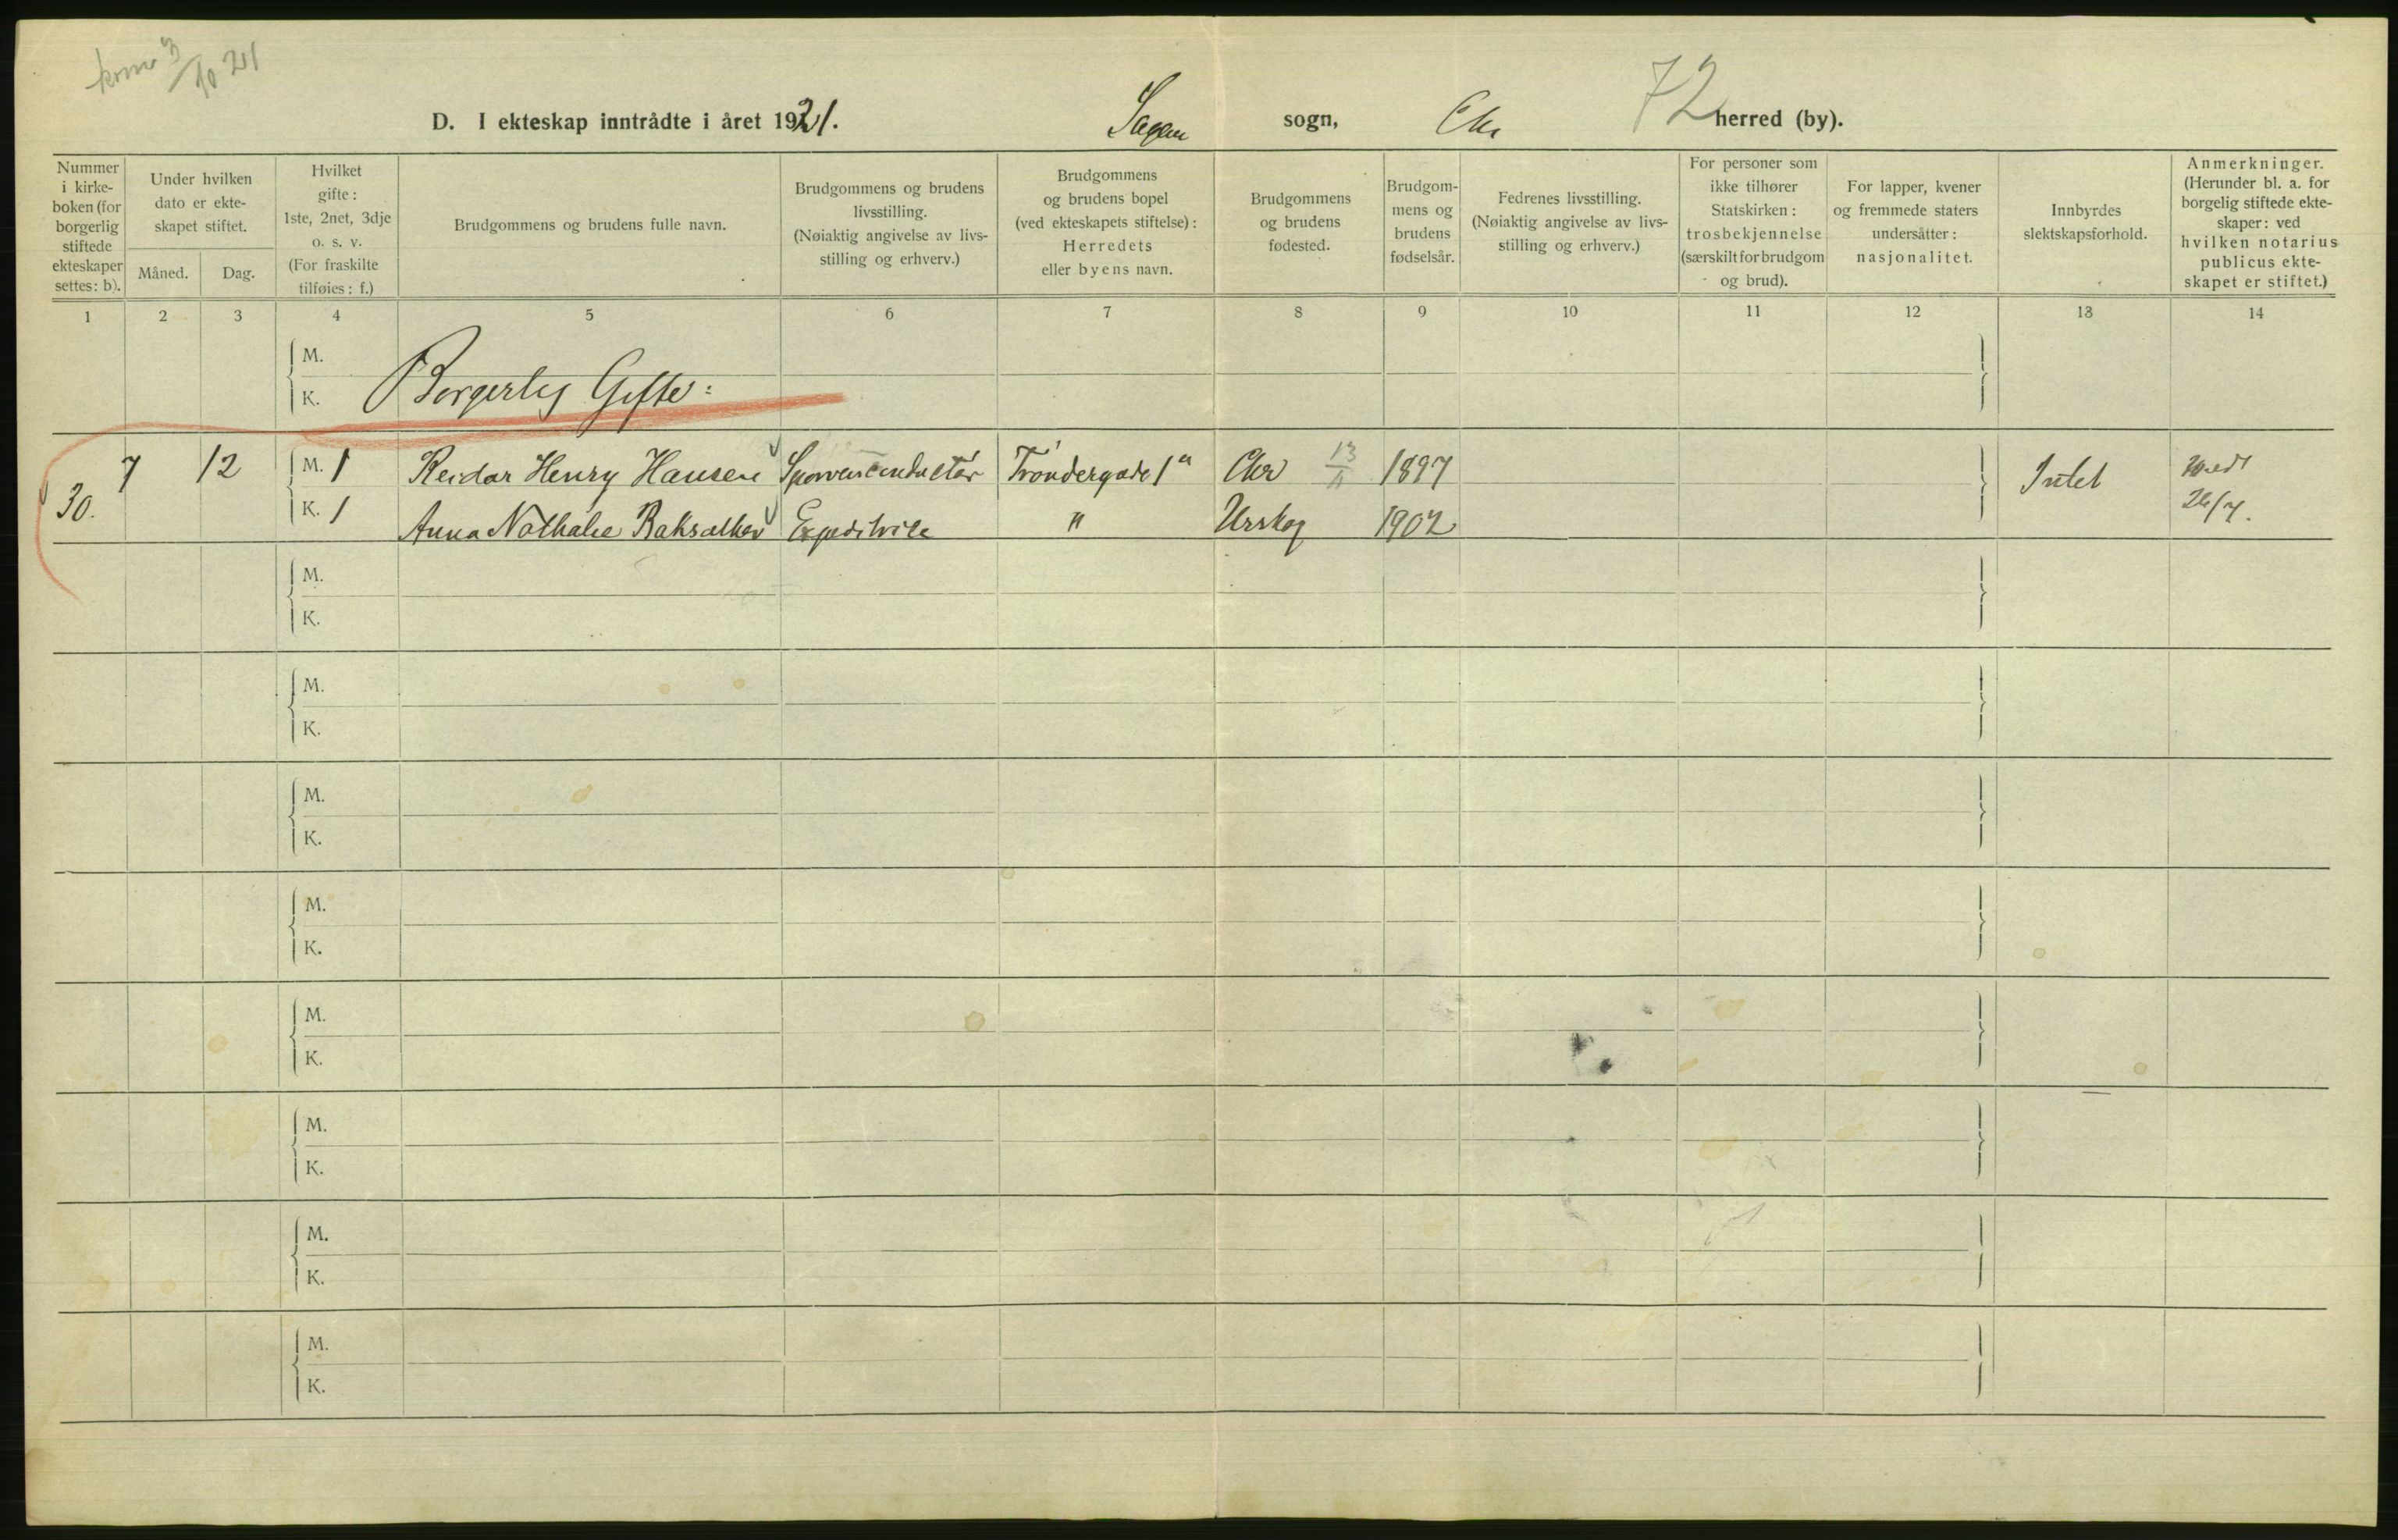 kom 3/10 21
72
D. I ekteskap inntrådte i året 1921. Sagen sogn, Chr herred (by).
Nummer i kirke- boken (for borgerlig stiftede ekteskaper settes: b).
Under hvilken dato er ekte- skapet stiftet.
Måned. Dag.
Hvilket gifte: 1ste, 2net, 3dje o. s. v. (For fraskilte tilføies: f.)
Brudgommens og brudens fulle navn.
Brudgommens og brudens livsstilling. (Nøiaktig angivelse av livs- stilling og erhverv.)
Brudgommens og brudens bopel (ved ekteskapets stiftelse): Herredets eller byens navn.
Brudgommens og brudens fødested.
Brudgom- mens og brudens fødselsår.
Fedrenes livsstilling. (Nøiaktig angivelse av livs- stilling og erhverv.)
For personer som ikke tilhører Statskirken: trosbekjennelse (særskilt for brudgom og brud).
For lapper, kvener og fremmede staters undersåtter: nasjonalitet.
Innbyrdes slektskapsforhold.
Anmerkninger. (Herunder bl. a. for borgelig stiftede ekte- skaper: ved hvilken notarius publicus ekte- skapet er stiftet.)
1 2 3 4 5 6 7 8 9 10 11 12 13 14
M.
K.
Borgerlig Gifte:
30. 7 12 M. 1 Reidar Henry Hansen Sporveiconductør Trøndergade 1" Chr 13/11 1897 Intet
K. 1 Anna Nathalie Baksæther Expeditrice " Urskog 1902
26/7.
M.
K.
M.
K.
M.
K.
M.
K.
M.
K.
M.
K.
M.
K.
M.
K.